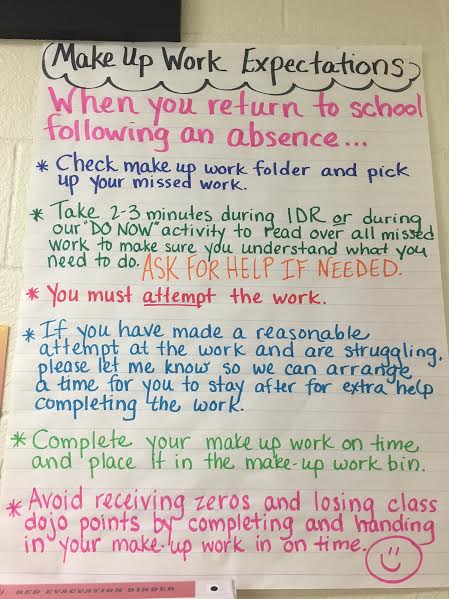 Make Up Work Expectations
When you return to school
following an absence...
* Check make up work folder and pick
up your missed work.
* Take 2-3 minutes during IDR or during
our "DO NOW" activity to read over all missed
work to make sure you understand what you
need to do. ASK FOR HELP IF NEEDED.
* You must attempt the work.
* If you have made a reasonable
attempt at the work and are struggling,
please let me know so we can arrange
a time for you to stay after for extra help
completing the work.
* Complete your make up work on time
and place it in the make-up work bin.
* Avoid receiving zeros and losing class
dojo points by completing and handing
in your make-up work in on time.
RED EVACUATION BINDER